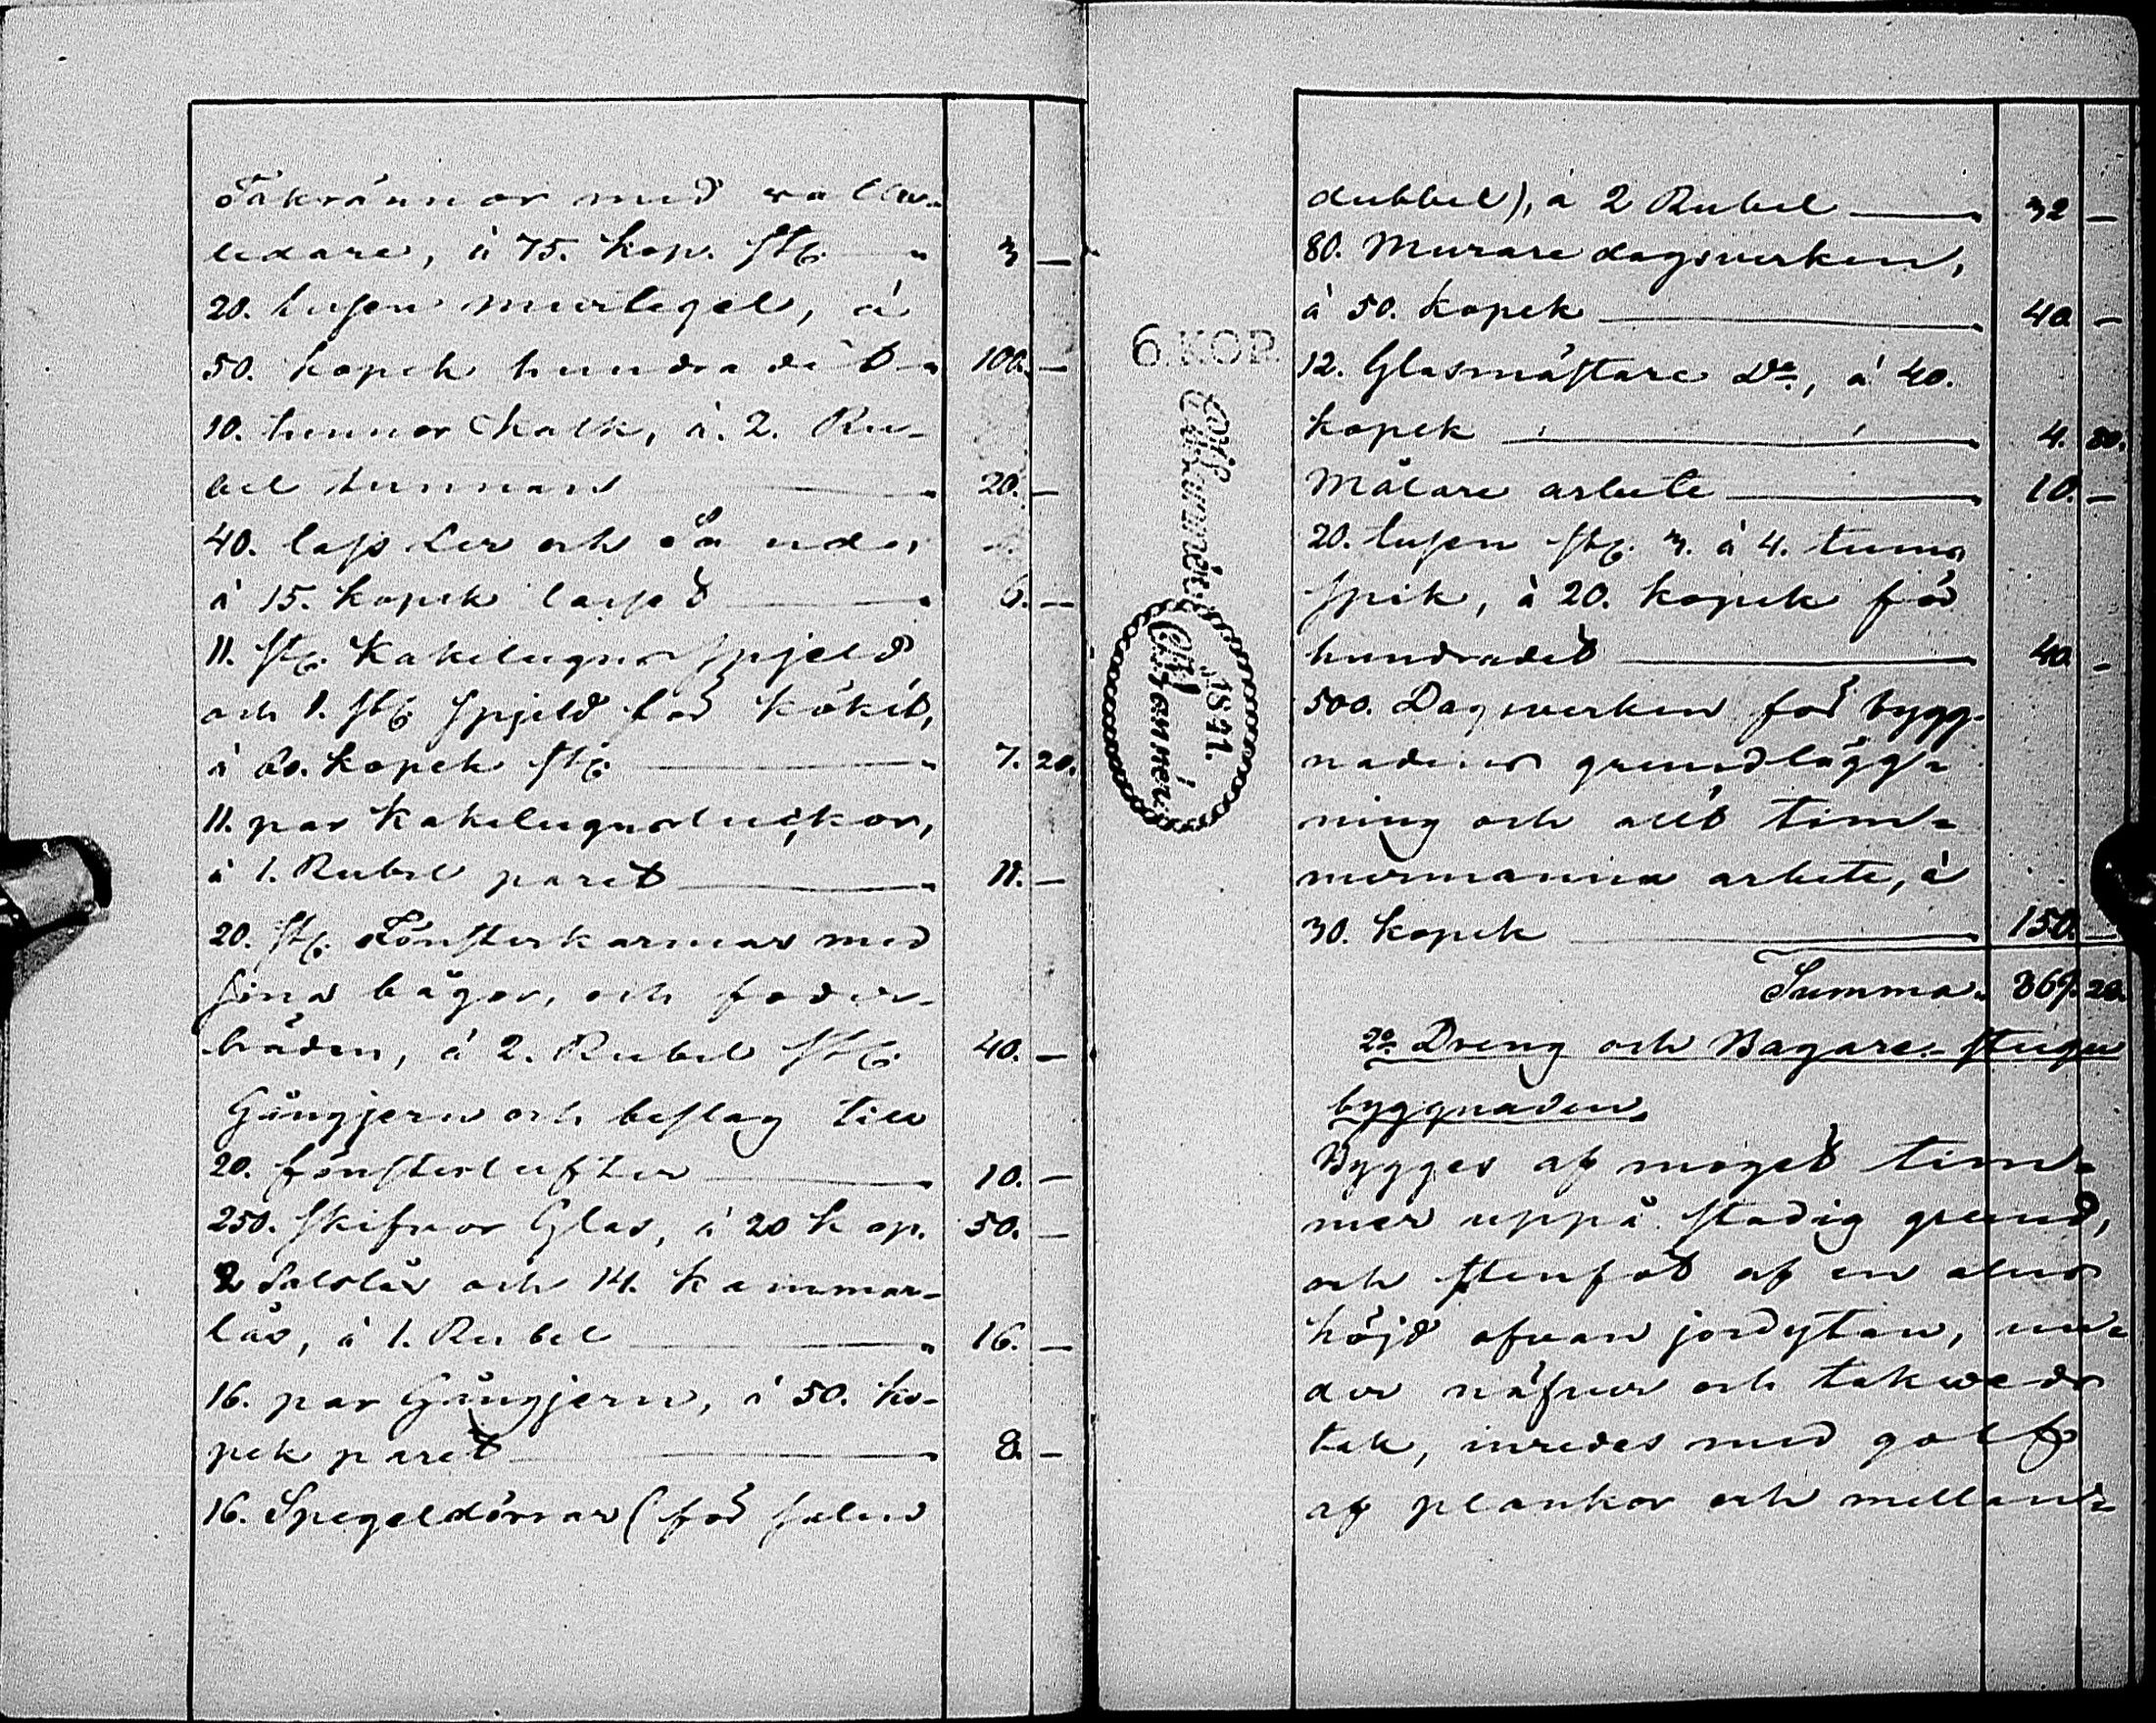 Takrännor med vatten-
ledare, à 75. Kop. st. 3 —
20. tusen murtegel, à
50. kopek hundradet 100. —
10. tunnor Kalk, à. 2. Ru-
bel tunnan 20. —
40. lass Ler och Sand,
à 15. Kopek lasset 6. —
11. st. Kakelugns spjeld
och 1. st. spjeld för köket,
à 60. Kopek st. 7. 20.
11. par Kakelugnsluckor,
à 1. Rubel paret 11. —
20. st. Fönsterkarmar med
sina bågar, och foder-
bräden, à 2. Rubel st. 40. —
Gångjern och beslag till
20. fönsterlufter 10. —
250. skifvor Glas, à 20 Kop. 50. —
2 Salslås och 14. Kammar-
lås, à 1. Rubel 16. —
16. par Gångjern, à 50. ko-
pek paret 8. —
16. Spegeldörrar (för salen
6 KOP.
1841.
dubbel), à 2 Rubel 32 —
80. Murare dagsverken,
à 50. kopek 40 —
12. Glasmästare Do, à 40.
kopek 4. 80.
Målare arbete 10. —
20. tusen st. 3. à 4. tums
spik, à 20. kopek för
hundradet 40 —
500. Dagsverken för bygg-
nadens grundlägg-
ning och allt tim-
mermanna arbete, à
30. kopek 150. —
Summa. 867. 20.
2o. Dreng och Bagare-stugu
byggnaden.
Bygges af moget tim-
mer uppå stadig grund,
och stenfot af en alns
höjd ofvan jordytan, un-
der näfver och takveds
tak, inredes med golf
af plankor och mellan-